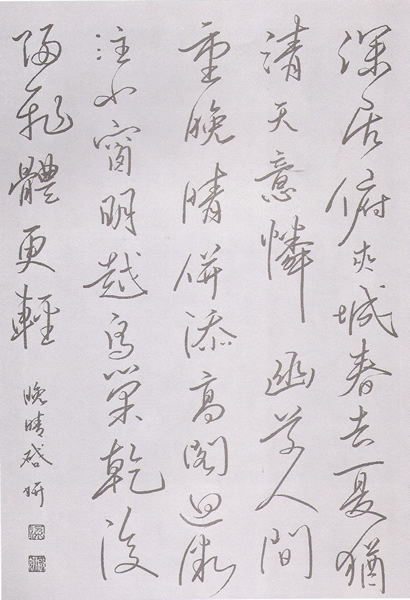 深居俯夾城春去夏猶
清天意憐幽草人間
重晚晴併添高閣迥微
注小窗明越鳥巢乾後
歸飛體更輕
晚晴